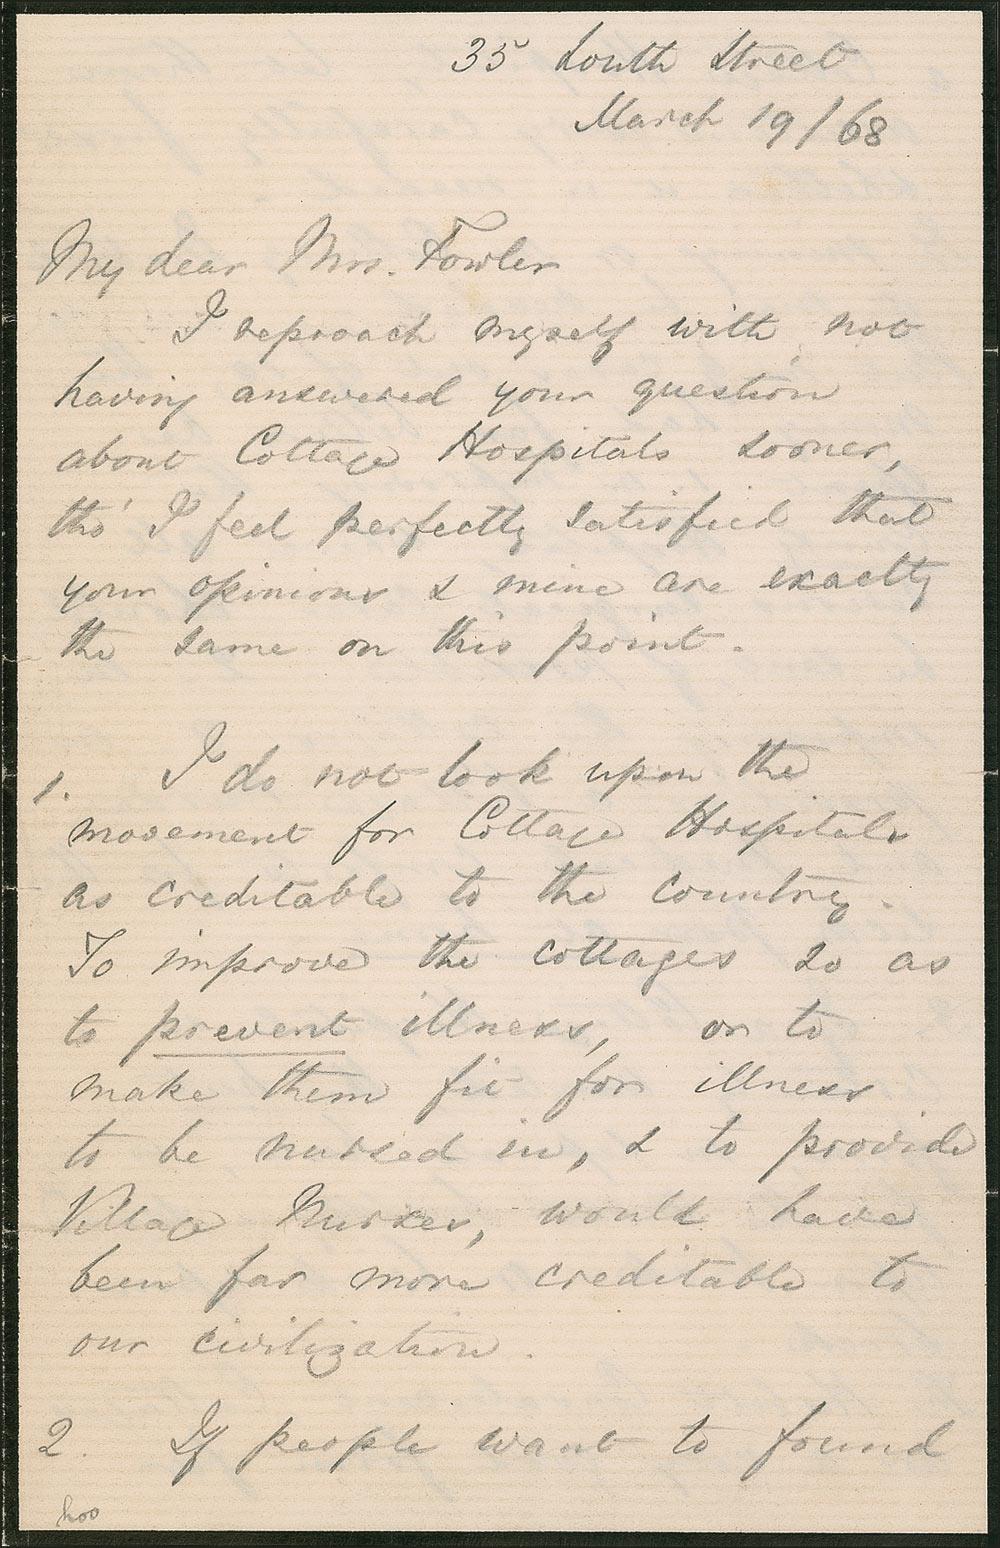 35 South Street
March 19/68
My dear Mrs. Fowler
I reproach myself with not
having answered your question
about Cottage Hospitals sooner,
tho' I feel perfectly satisfied that
your opinions & mine are exactly
the same on this point.
1. I do not look upon the
movement for Cottage Hospitals
as creditable to the country.
To improve the cottages so as
to prevent illness, or to
make them fit for illness
to be nursed in, & to provide
Village Nurses, would have
been far more creditable to
our civilization.
2. If people want to found